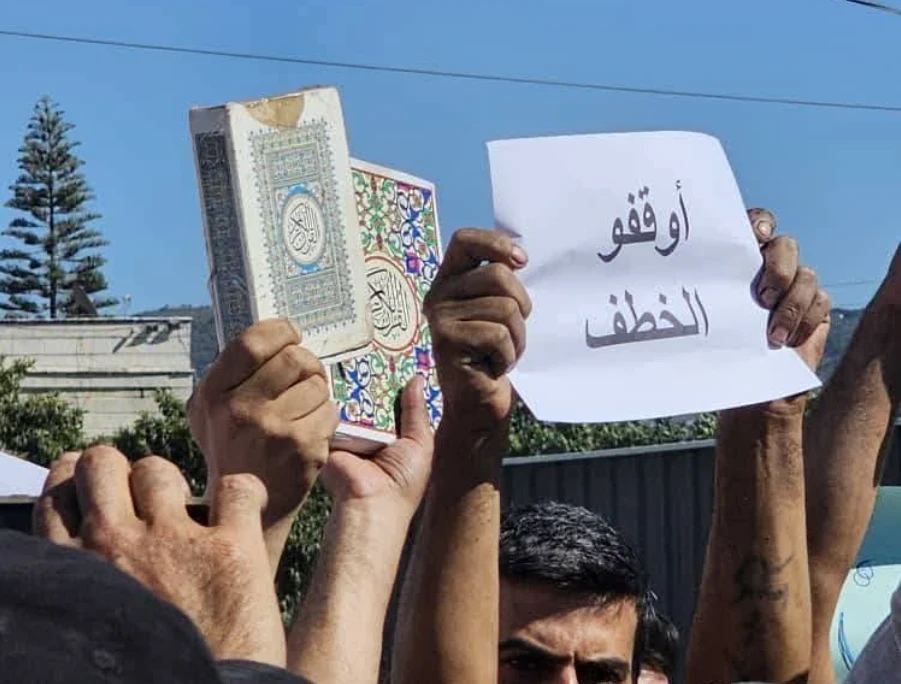 القرآن الكريم
القرآن الكريم
أوقفو
الخطف